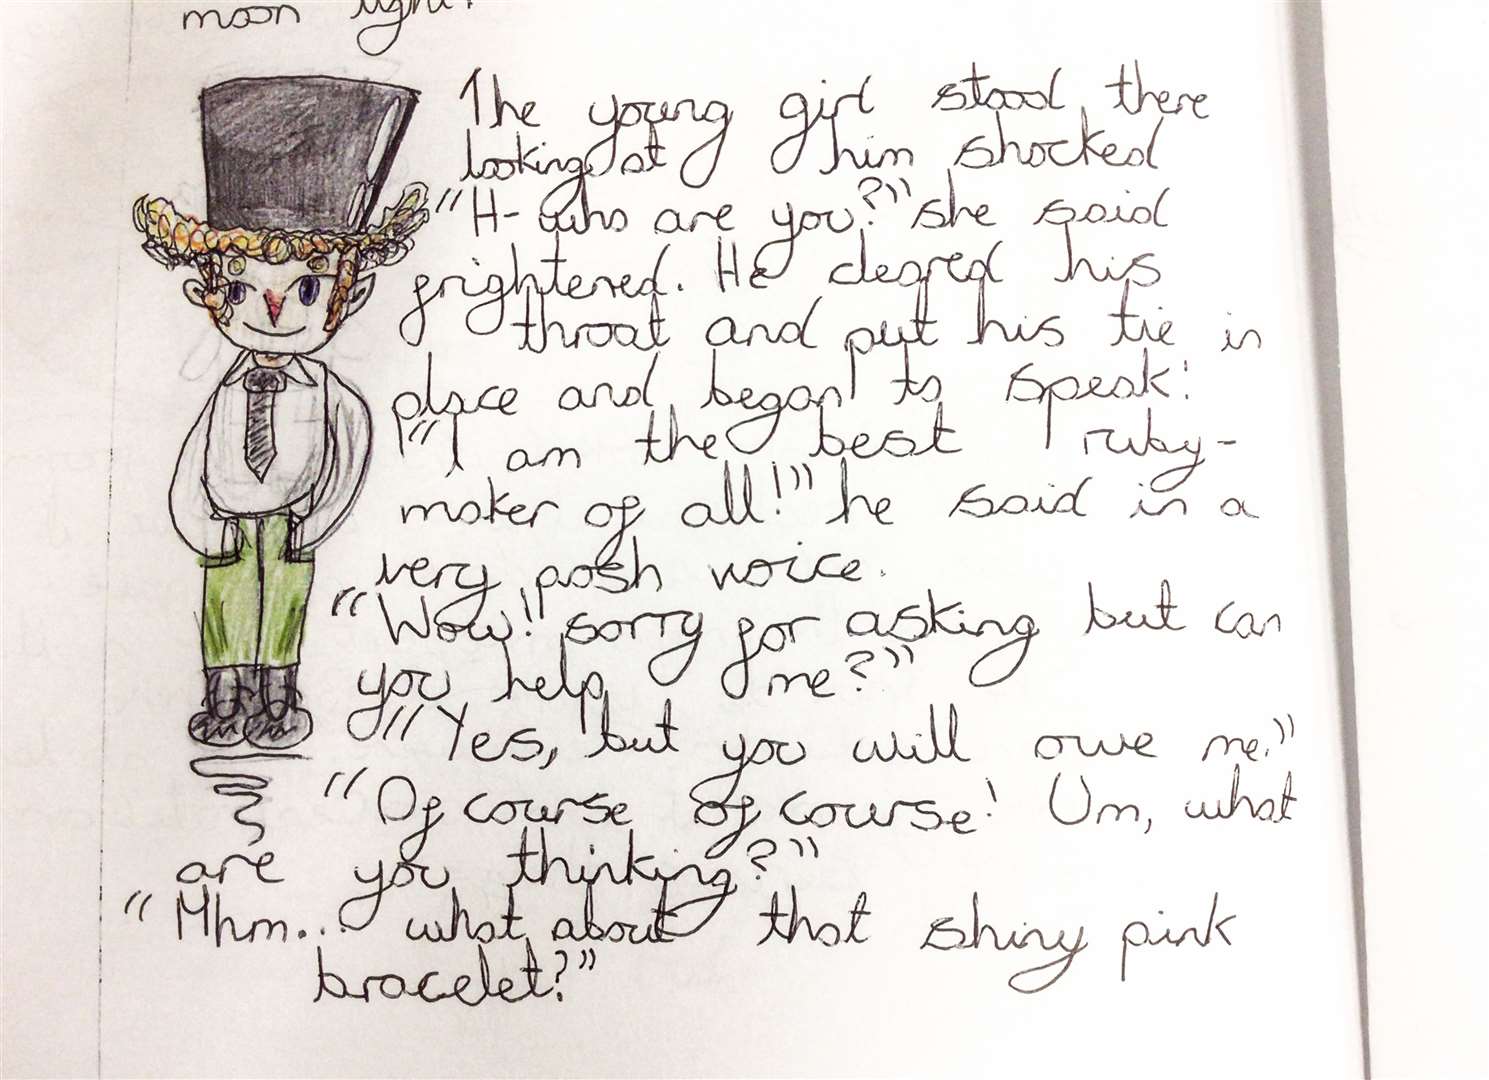 moon light.
The young girl stood there
looking at him shocked
"H- who are you?" she said
frightened. He cleared his
throat and put his tie in
place and began to speak:
"I am the best ruby-
maker of all!" he said in a
very posh voice.
"Wow! sorry for asking but can
you help me?"
"Yes, but you will owe me."
"Of course of course! Um, what
are you thinking?"
"Mhm... what about that shiny pink
bracelet?"